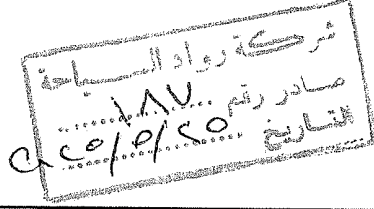 شركة رواد السياحة
صادر رقم ١٨٧
التاريخ ٢٠٢٥/٥/٢٥